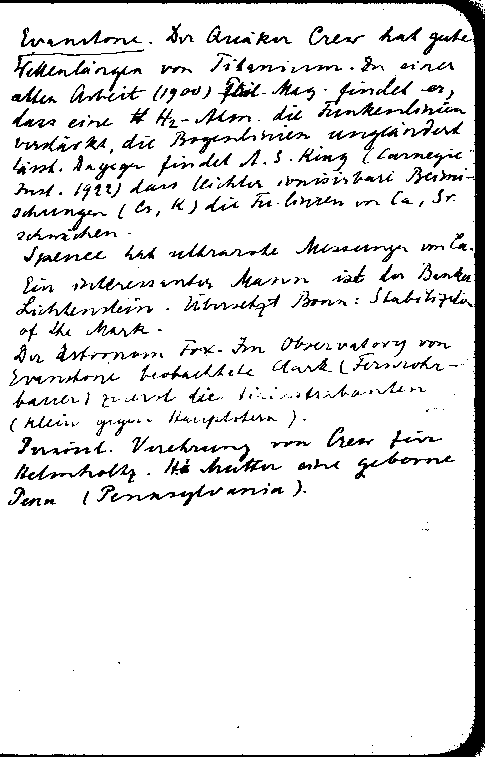 Evanstone. Der Quäker Crew hat gute
Wellenlängen von Titanium. In einer
alten Arbeit (1900) Phil. Mag. findet er,
dass eine H H₂-Atm. die Funkenlinien
verstärkt, die Bogenlinien ungeändert
lässt. Dagegen findet A. S. King (Carnegie
Inst. 1922) dass leichter ionisirbare Beimi-
schungen (Cs, K) die Fu.linien von Ca, Sr.
schwächen.
Spence hat ultrarote Messungen von Ca.
Ein interessanter Mann ist der Banker
Lichtenstein. Übersetzt Bonn: Stabilization
of the Mark.
Der Astronom Fox. Im Observatory von
Evanstone beobachtete Clark (Fernrohr-
bauer) zuerst die Siriustrabanten
(klein gegen Hauptstern).
Persönl. Verehrung von Crew für
Helmholtz. Mutter eine geborne
Penn (Pennsylvania).